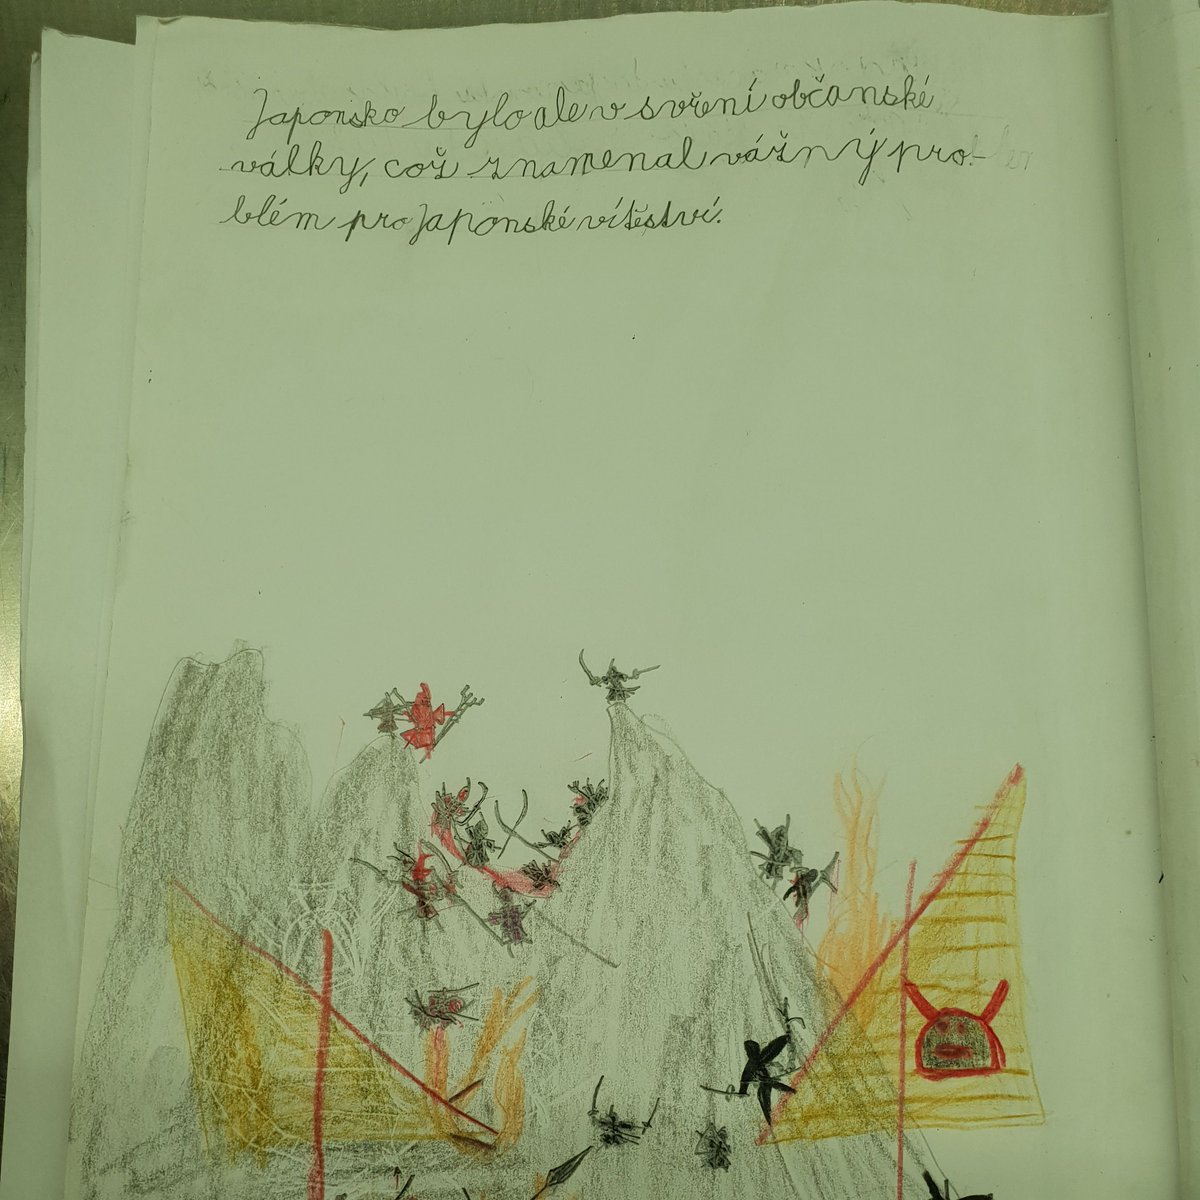 Japonsko bylo ale v svření občanské
války, což znamenal vážný pro-
blém pro Japonské vítěství.